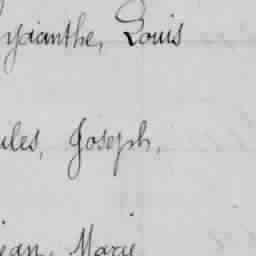 yacianthe, Louis
ules, Joseph,
jean, Marie